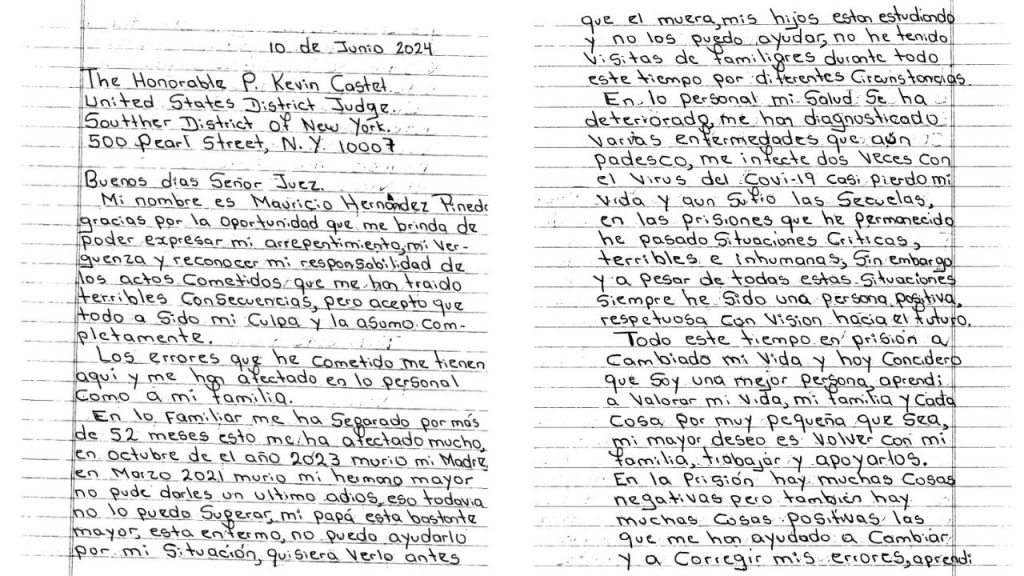 10 de Junio 2024
The Honorable P. Kevin Castel
United States District Judge.
Soutther District Of New York.
500 Pearl Street, N.Y. 10007
Buenos dias Señor Juez.
Mi nombre es Mauricio Hernández Pineda
gracias por la oportunidad que me brinda de
poder expresar mi arrepentimiento, mi ver-
guenza y reconocer mi responsabilidad de
los actos Cometidos que me han traido
terribles Consecuencias, pero acepto que
todo a Sido mi Culpa y la asumo com-
pletamente.
Los errores que he cometido me tienen
aqui y me han afectado en lo personal
Como a mi familia.
En lo Familiar me ha Separado por más
de 52 meses esto me ha afectado mucho,
en octubre de el año 2023 murio mi Madre,
en Marzo 2021 murio mi hermano mayor
no pude darles un ultimo adios, eso todavia
no lo puedo Superar, mi papá esta bastante
mayor, esta enfermo, no puedo ayudarlo
por mi Situación, quisiera verlo antes
que el muera, mis hijos estan estudiando
y no los puedo ayudar, no he tenido
Visitas de familiares durante todo
este tiempo por diferentes Circunstancias.
En lo personal mi Salud Se ha
deteriorado, me han diagnosticado
Varias enfermedades que aún
padesco, me infecte dos Veces con
el Virus del Covi-19 casi pierdo mi
Vida y aun Sufro las Secuelas,
en las prisiones que he permanecido
he pasado Situaciones Criticas,
terribles e inhumanas, Sin embargo
y a pesar de todas estas Situaciones
Siempre he Sido una persona positiva,
respetuosa con Vision hacia el futuro.
Todo este tiempo en prisión a
Cambiado mi Vida y hoy Concidero
que Soy una mejor persona, aprendi
a Valorar mi Vida, mi familia y Cada
Cosa por muy pequeña que Sea,
mi mayor deseo es Volver con mi
familia, trabajar y apoyarlos.
En la Prisión hay muchas Cosas
negativas pero también hay
muchas Cosas Positivas las
que me han ayudado a Cambiar
y a Corregir mis errores, aprendi